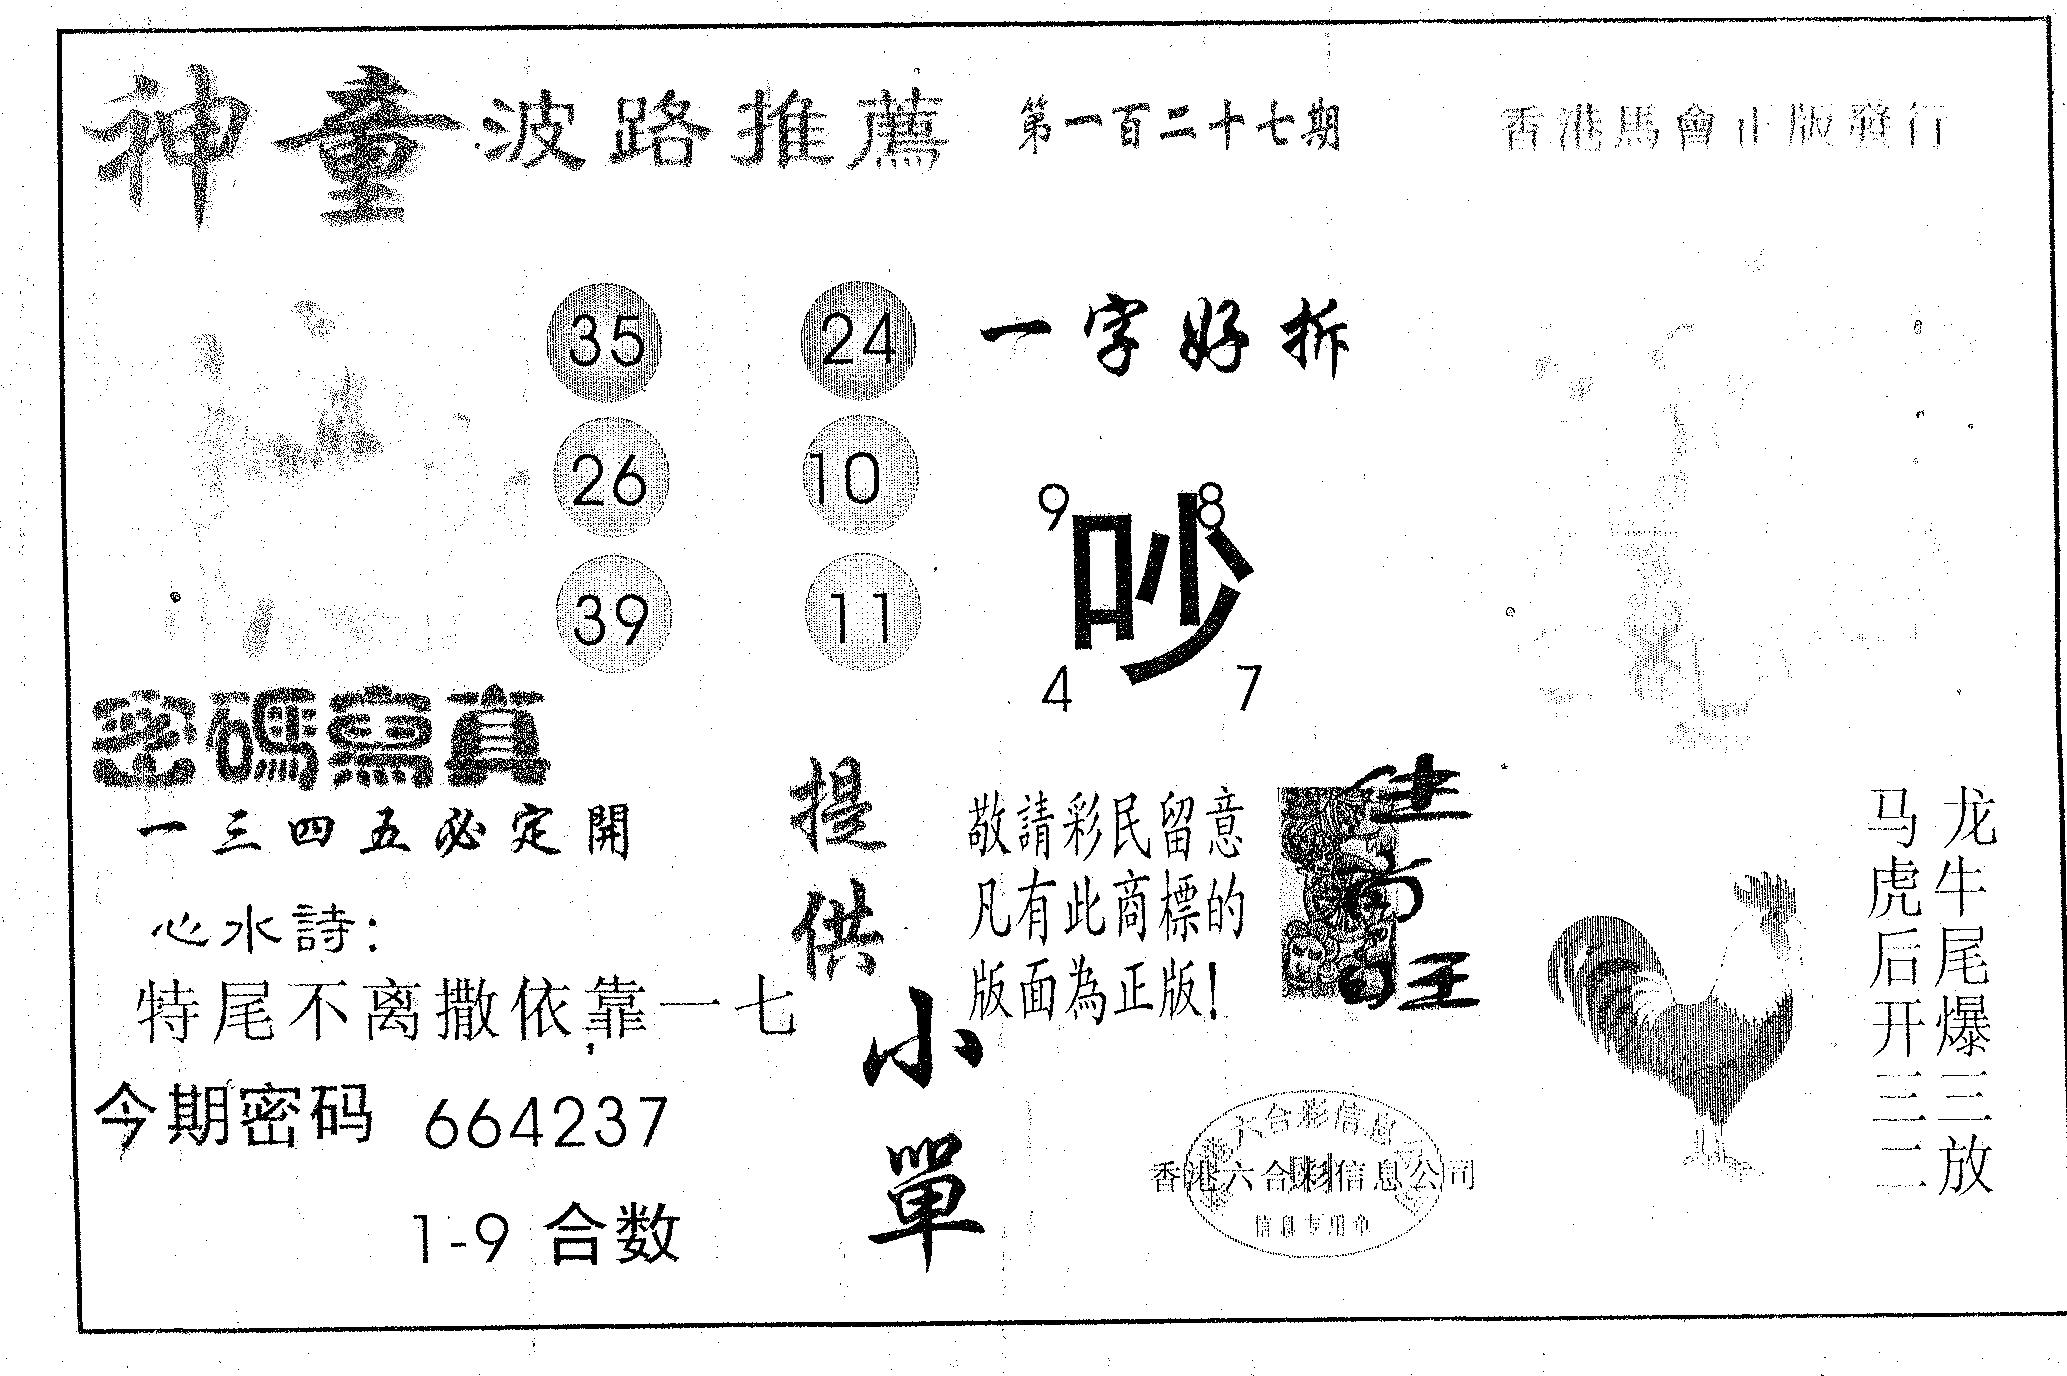 神童波路推薦 第一百二十七期 香港馬會正版發行
35 24
26 10
39 11
一字好拆
9 8
吵
4 7
密碼寫真
一三四五必定開
心水詩:
特尾不离撒依靠,一七
今期密码 664237
1-9 合数
提供
小單
敬請彩民留意
凡有此商標的
版面為正版!
龙牛尾爆三放
马虎后开三二
六合彩信息公司
香港六合彩信息公司
信息专用章